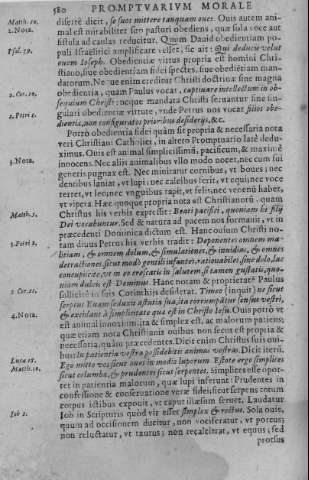 580 PROMPTVARIVM MORALE
Matth. 10. disertè dicit, se suos mittere tanquam oues. Ouis autem ani-
2. Nota. mal est mirabiliter suo pastori obediens, quæ sola voce aut
fistula ad caulas reducitur. Quum Dauid obedientiam po-
Psal. 79. puli Israelitici amplificare vellet, sic ait: Qui deducis velut
ouem Ioseph. Obedientiæ virtus propria est homini Chri-
stiano, siue obedientiam fidei spectes, siue obedientiam man-
datorum. Ne
obedientia, quam Paulus vocat, captiuare intellectum in ob-
2. Cor. 10. sequium Christi: neque mandata Christi seruantur sine sin-
gulari obedientiæ virtute, vnde Petrus nos vocat filios obe-
1. Petri 1. dientiæ, non configuratos prioribus desiderijs, &c.
Porrò obedientia fidei quàm sit propria & necessaria nota
veri Christiani Catholici, in altero Promptuario latè dedu-
ximus. Ouis est animal simplicissimū, pacificum, & maximè
3. Nota. innocens. Nec alijs animalibus vllo modo nocet, nec cum sui
generis pugnax est. Nec minitatur cornibus, vt boues; nec
dentibus laniat, vt lupi; nec calcibus ferit, vt equi; nec voce
terret, vt leo; nec vnguibus rapit, vt felis; nec venenū habet,
vt vipera. Hæc quoque propria nota est Christianorū, quam
Matth. 5. Christus his verbis expressit: Beati pacifici, quoniam hi filij
Dei vocabuntur. Sed & natura ad pacem nos formauit, vt in
præcedenti Dominica dictum est. Hanc ouium Christi no-
1. Petri 2. tam diuus Petrus his verbis tradit: Deponentes omnem ma-
litiam, & omnem dolum, & simulationes, & inuidias, & omnes
detractiones, sicut modò geniti infantes, rationabiles, sine dolo, lac
concupiscite, vt in eo crescatis in salutem, si tamen gustatis, quo-
niam dulcis est Dominus. Hanc notam & proprietatē Paulus
2. Cor. 11. sollicitè in suis Corinthijs desiderat. Timeo (inquit) ne sicut
serpens Euam seduxit astutia sua, ita corrumpātur sensus vestri,
4. Nota. & excidant à simplicitate quæ est in Christo Iesu. Ouis porrò vt
est animal innoxium, ita & simplex est, ac malorum patiens;
quæ etiam nota Christianis ouibus non secus est propria &
necessaria, quàm præcedentes. Dicit enim Christus suis oui-
Luca 21. bus: In patientia vestra possidebitis animas vestras. Dicit iterū.
Matth. 10. Ego mitto vos sicut oues in medio luporum. Estote ergo simplices
sicut columbæ, & prudentes sicut serpentes. Simplices esse opor-
tet in patientia malorum, quæ lupi inferunt: Prudentes in
confessione & conseruatione veræ fidei, sicut serpens totum
corpus ictibus exponit, vt caput illæsum seruet. Laudatur
Iob 1. Iob in Scripturis quòd vir esset simplex & rectus. Sola ouis,
quum ad occisionem ducitur, non vociferatur, vt porcus;
non reluctatur, vt taurus; non recalcitrat, vt equus; sed
prorsus